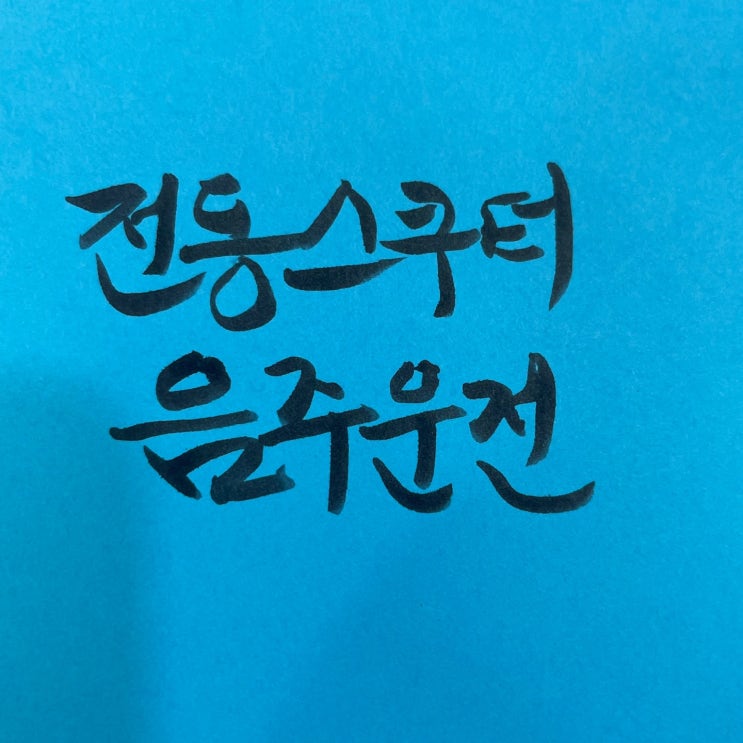 전동스쿠터
음주운전